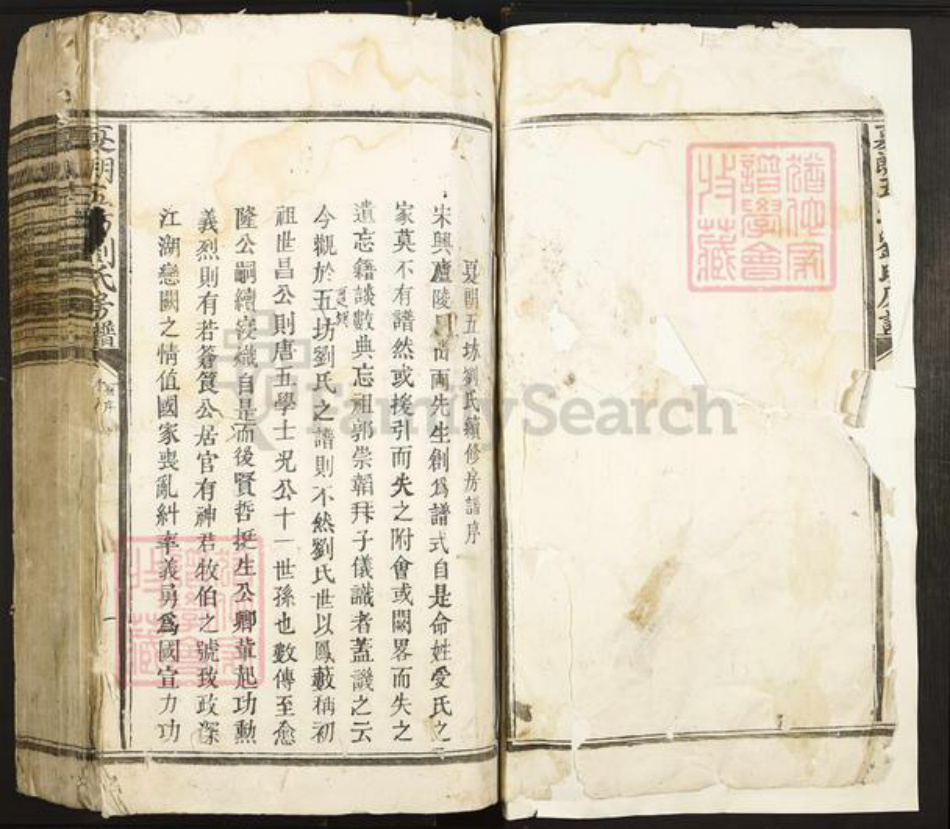 夏朗五坊劉氏續修房譜序
宋興廬陵 兩先生創為譜式自是命姓受氏之
家莫不有譜然或援引而失之附會或闕畧而失之
遺忘籍談數典忘祖郭崇韜拜子儀識者蓋譏之云
今觀於夏朗五坊劉氏之譜則不然劉氏世以鳳藪稱初
祖世昌公則唐五學士況公十一世孫也數傳至愈
隆公嗣續寖熾自是而後賢哲挺生公卿輩起功勲
義烈則有若簣公居官有神君牧伯之號致政深
江湖戀闕之情值國家喪亂糾率義勇為國宣力功
五坊劉氏房譜
序
一
譜學會
收藏
FamilySearch